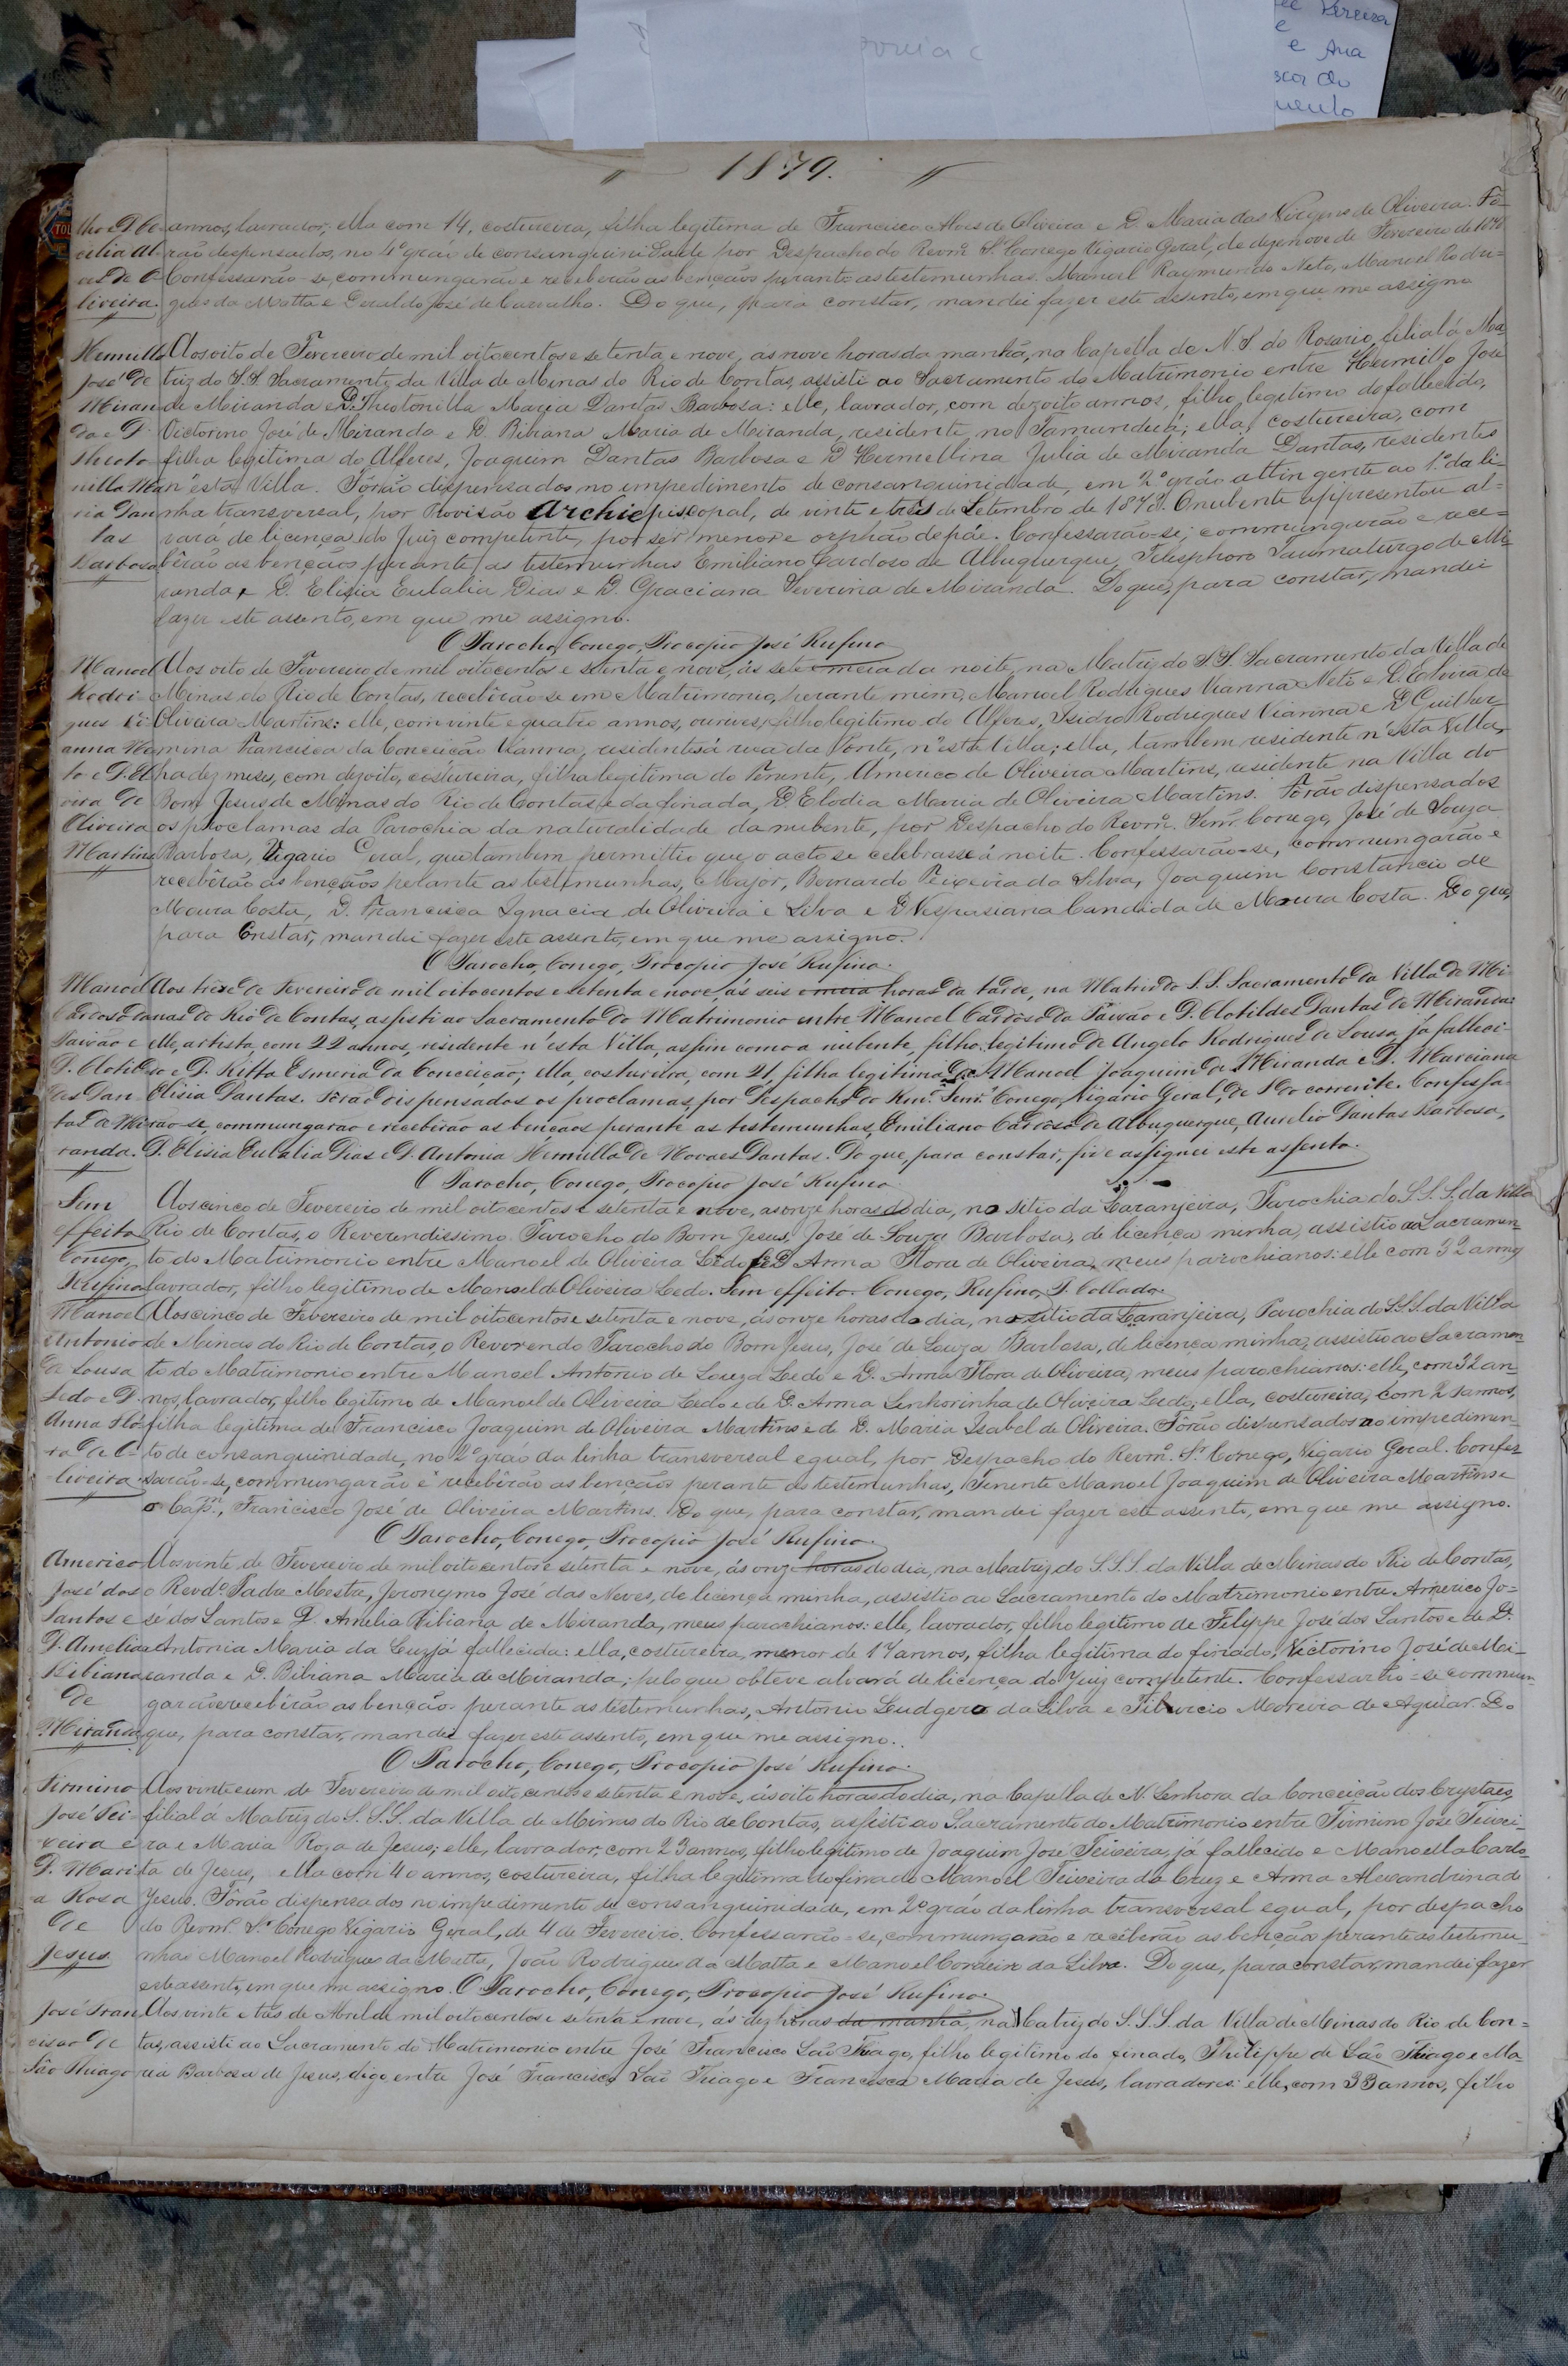 ee Pereira
e
e Ana
sca do
mento
1879.
lho e D. Ce- annos, lavrador; ella com 14, costureira, filha legitima de Francisco Alves de Oliveira e D. Maria das Virgens de Oliveira. Fô-
cilia Al- rão despensados, no 4º gráo de consanguinidade por Despacho do Revmº Sr. Conego Vigario Geral, de dezenove de Fevereiro de 1879
ves de O- Confessarão-se, commungarão e receberão as bençaõs perante as testemunhas Manoel Raymundo Neto, Manoel Rodri-
liveira. gues da Matta e Geraldo José de Carvalho. Do que, para constar, mandei fazer este assento, em que me assigno
Hermillo Aos oito de Fevereiro de mil oitocentos e setenta e nove, as nove horas da manhã, na Capella de N. S. do Rosario, filial á Ma-
José de triz do S. S. Sacramento da Villa de Minas do Rio de Contas, assisti ao Sacramento do Matrimonio entre Hermillo José
Miran de Miranda e D. Theotonilla Maria Dantas Barbosa: elle, lavrador, com dezoito annos, filho legitimo do fallecido,
da e D. Victorino José de Miranda e D. Bibiana Maria de Miranda, residente, no Tamanduá; ella, costureira, com
Theoto- filha legitima do Alferes, Joaquim Dantas Barbosa e D. Hermellina Julia de Miranda Dantas, residentes
nilla Ma n'esta Villa. Fôrão dispensados no impedimento de consanguinidade, em 2º gráo attingente ao 1º da li-
ria Dan nha transversal, por Provisão Archiepiscopal, de vinte e trez de Setembro de 1878. O nubente appresentou al-
tas vará de licença do Juiz competente, por ser menor e orphão de páe. Confessarão-se; commungarão e rece-
Barbosa bêrão as bençaõs perante as testemunhas Emiliano Cardoso de Albuquerque, Telesphoro Taumaturgo de Mi-
randa, D. Elisia Eulalia Dias e D. Graciana Severina de Miranda. Do que, para constar, mandei
fazer este assento, em que me assigno.
O Parocho, Conego, Procopio José Rufino
Manoel Aos oito de Fevereiro de mil oitocentos e setenta e nove, ás sete e meia da noite, na Matriz do S. S. Sacramento da Villa de
Rodri- Minas do Rio de Contas, receberão-se em Matrimonio, perante mim, Manoel Rodrigues Vianna Neto e D. Elvira de
gues Vi- Oliveira Martins: elle, com vinte e quatro annos, ourives, filho legitimo do Alferes, Isidro Rodrigues Vianna e D. Guilher-
anna Ne mina Francisca da Conceição Vianna, residentes á rua da Ponte, n'esta Villa; ella, tambem residente n'esta Villa,
to e D. El ha dez meses, com dezoito, costureira, filha legitima do Tenente, Americo de Oliveira Martins, residente na Villa do
vira de Bom Jesus de Minas do Rio de Contas, e da finada, D. Elodia Maria de Oliveira Martins. Fôrão dispensados
Oliveira os proclamas da Parochia da naturalidade da nubente, por Despacho do Revmº. Senr. Conego, José de Souza
Martins Barbosa, Vigario Geral, que tambem permittio que o acto se celebrasse á noite. Confessarão-se, commungarão e
recebêrão as bençaõs perante as testemunhas, Major, Bernardo Teixeira da Silva, Joaquim Constancio de
Moura Costa, D. Francisca Ignacia de Oliveira e Silva e D. Vespasiana Candida de Moura Costa. Do que,
para constar, mandei fazer este assento, em que me assigno.
O Parocho, Conego, Procopio José Rufino.
Manoel Aos treze de Fevereiro de mil oitocentos e setenta e nove, ás seis e meia horas da tarde, na Matriz do S. S. Sacramento da Villa de Mi-
Cardoso da nas do Rio de Contas, assisti ao Sacramento do Matrimonio entre Manoel Cardoso da Paixão e D. Clotildes Dantas de Miranda:
Paixão e elle, artista, com 22 annos, residente n'esta Villa, assim como a nubente, filho legitimo de Angelo Rodrigues de Sousa, já falleci-
D. Clotil- do e D. Ritta Esmeria da Conceição; ella, costureira, com 21, filha legitima de Manoel Joaquim de Miranda e D. Marciana
des Dan- Elisia Dantas. Forão dispensados os proclamas, por Despacho do Rmº. Senr. Conego, Vigario Geral, de 1 do corrente. Confessa-
tas de Mi rão-se, commungarão e receberão as bençaõs perante as testemunhas, Emiliano Cardoso de Albuquerque, Aurelio Dantas Barbosa,
randa. D. Elisia Eulalia Dias e D. Antonia Hemulla de Novaes Dantas. Do que, para constar, fiz e assignei este assento.
O Parocho, Conego, Procopio José Rufino.
Sem Aos cinco de Fevereiro de mil oitocentos e setenta e nove, as onze horas do dia, no sitio da Laranjeira, Parochia do S. S. S. da Villa
effeito Rio de Contas, o Reverendissimo Parocho do Bom Jesus, José de Souza Barbosa, de licença minha, assistio ao Sacramen-
Conego, to do Matrimonio entre Manoel de Oliveira Ledo e D. Anna Flora de Oliveira, meus parochianos: elle com 32 annos
Rufino lavrador, filho legitimo de Manoel de Oliveira Ledo. Sem effeito. Conego, Rufino, P. Collado.
Manoel Aos cinco de Fevereiro de mil oitocentos e setenta e nove, ás onze horas do dia, no sitio da Laranjeira, Parochia do S. S. S. da Villa
Antonio de Minas do Rio de Contas, o Reverendo Parocho do Bom Jesus, José de Souza Barbosa, de licença minha, assistio ao Sacramen-
de Sousa to do Matrimonio entre Manoel Antonio de Souza Ledo e D. Anna Flora de Oliveira, meus parochianos: elle, com 32 an-
Ledo e D. nos, lavrador, filho legitimo de Manoel de Oliveira Ledo e de D. Anna Senhorinha de Oliveira Ledo; ella, costureira, com annos,
Anna Flo- filha legitima de Francisco Joaquim de Oliveira Martins e de D. Maria Isabel de Oliveira. Fôrão dispensados no impedimen-
ra de O- to de consanguinidade, no 2º gráo da linha transversal egual, por Despacho do Revmº. Sr. Conego, Vigario Geral. Confes-
liveira sarão-se, commungarão e recebêrão as bençaõs perante as testemunhas, Tenente Manoel Joaquim de Oliveira Martins e
o Capm., Francisco José de Oliveira Martins. Do que, para constar, mandei fazer este assento, em que me assigno.
O Parocho, Conego, Procopio José Rufino.
Americo Aos vinte de Fevereiro de mil oitocentos e setenta e nove, ás onze horas do dia, na Matriz do S. S. S. da Villa de Minas do Rio de Contas,
José dos o Revdº. Padre Mestre, Jeronymo José das Neves, de licença minha, assistio ao Sacramento do Matrimonio entre Americo Jo-
Santos e sé dos Santos e D. Amelia Bibiana de Miranda, meus parochianos: elle, lavrador, filho legitimo de Felippe José dos Santos e de D.
D. Amelia Antonia Maria da Cruz, já fallecida: ella, costureira, menor de 17 annos, filha legitima do finado, Victorino José de Mi-
Bibiana randa e D. Bibiana Maria de Miranda; pelo que obteve alvará de licença do Juiz competente. Confessarão-se commun-
de garão e recebêrão as bençaõs perante as testemunhas, Antonio Ludgero da Silva e Tiburcio Moreira de Aguiar. Do
Miranda que, para constar, mandei fazer este assento, em que me assigno.
O Parocho, Conego, Procopio José Rufino.
Firmino Aos vinte e um de Fevereiro de mil oitocentos e setenta e nove, ás oito horas do dia, na Capella de N. Senhora da Conceição dos Crystaes,
José Tei- filial á Matriz do S. S. S. da Villa de Minas do Rio de Contas, assisti ao Sacramento do Matrimonio entre Firmino José Teixei-
xeira e ra e Maria Roza de Jesus; elle, lavrador, com 23 annos, filho legitimo de Joaquim José Teixeira, já fallecido e Manoella Carlo-
D. Mari- ta de Jesus, ella com 40 annos, costureira, filha legitima do finado Manoel Teixeira da Cruz e Anna Alexandrina de
a Rosa Jesus. Fôrão dispensados no impedimento de consanguinidade, em 2º gráo da linha transversal egual, por despacho
de do Revmº. Sr. Conego Vigario Geral, de 4 de Fevereiro. Confessarão-se, commungarão e recêberão as bençaõs perante as testemu-
Jesus. nhas Manoel Rodrigues da Matta, João Rodrigues da Matta e Manoel Cordeiro da Silva. Do que, para constar, mandei fazer
este assento, em que me assigno. O Parocho, Conego, Procopio José Rufino.
José Fran Aos vinte e trés de Abril de mil oitocentos e setenta e nove, ás dez horas da manhã, na Matriz do S. S. S. da Villa de Minas do Rio de Con-
cisco de tas, assisti ao Sacramento do Matrimonio entre José Francisco São Thiago, filho legitimo do finado, Philippe de São Thiago e Ma-
São Thiago ria Barbosa de Jesus, digo entre José Francisco São Thiago e Francisca Maria de Jesus, lavradores: elle, com 33 annos, filho